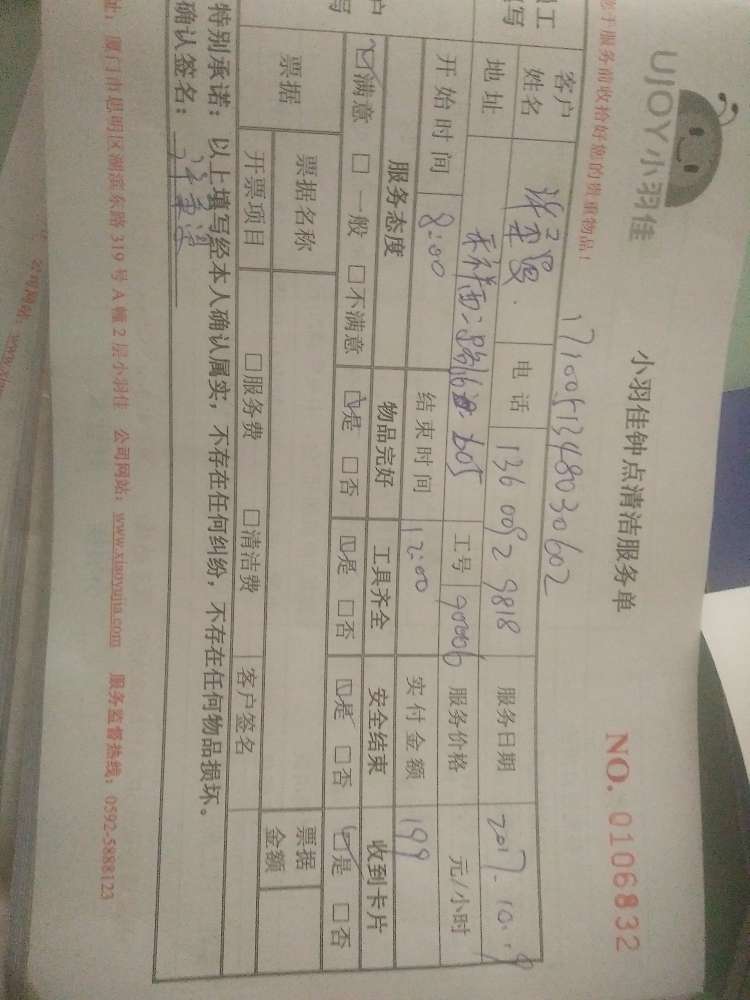 UJOY小羽佳
小羽佳钟点清洁服务单
NO. 0106832
于服务前收拾好您的贵重物品！
1710051348030602
客户
姓名
电话 136 0092 9818
服务日期 2017.10.9
地址
605
工号 90006
服务价格 元/小时
开始时间 8:00
结束时间 12:00
实付金额 199
服务态度 物品完好 工具齐全 安全结束 收到卡片
☑满意 □一般 □不满意 ☑是 □否 ☑是 □否 ☑是 □否 ☑是 □否
票据 票据名称 票据
金额
开票项目 □服务费 □清洁费 客户签名
特别承诺：以上填写经本人确认属实，不存在任何纠纷，不存在任何物品损坏。
确认签名：
址：厦门市思明区湖滨东路319号A幢2层小羽佳 公司网站：www.xiaoyujia.com 服务监督热线：0592-5888123